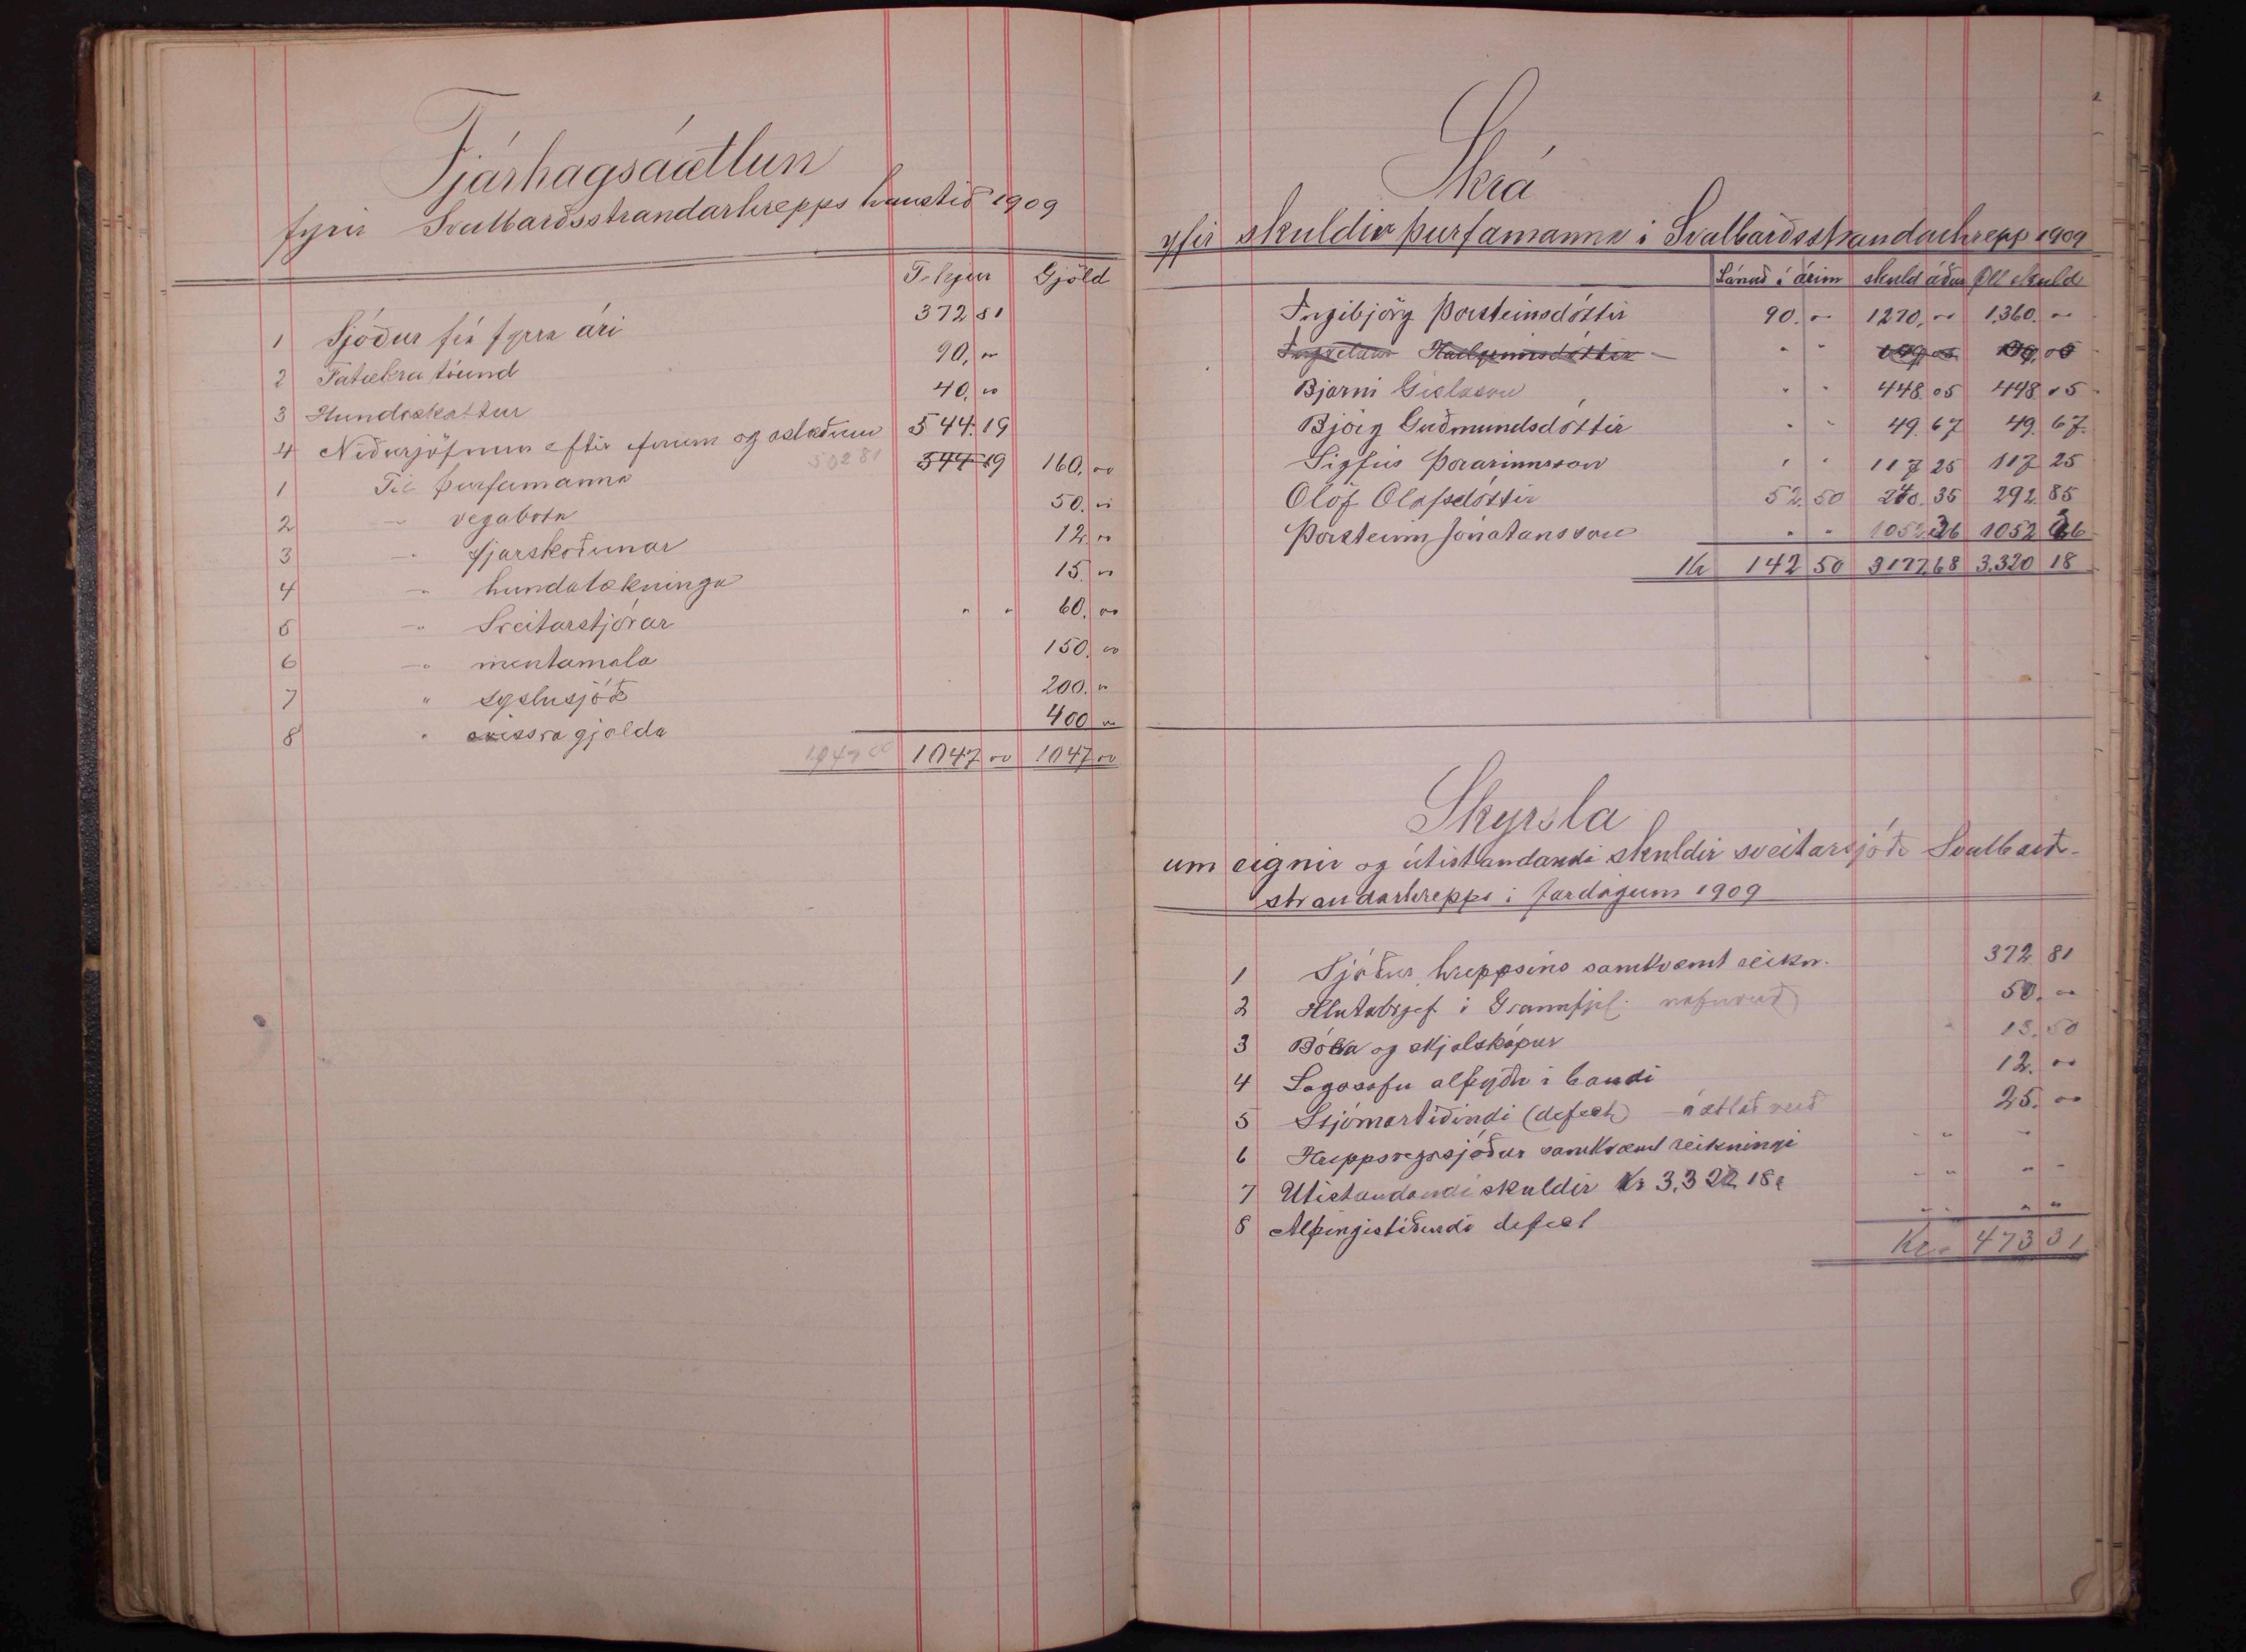 Fjárhagsáætlun
fyrir Svalbarðsstrandarhrepps haustið 1909
Tekjur Gjöld
1 Sjóður frá fyrra ári 372 81
2 Fátækra tíund 90,00
3 Hundaskattur 40,00
4 Niðurjöfnun eftir efnum og ástæðum 544.19
1 Til þurfamanna 502 81 544 19 160,00
2 -"- vegabóta 50.00
3 -"- fjárskoðunar 12.00
4 -"- hundalækninga 15.00
5 -"- Sveitarstjórar " " 60,00
6 -"- mentamála 150.00
7 " sýslusjóðs 200.00
8 " ýmissra gjalda 400 00
1047 00 1047 00 1047 00
Skrá
yfir skuldir þurfamanna í Svalbarðsstrandarhrepp 1909
Lánað í árinu skuld áður Öll skuld
Ingibjörg Þorsteinsdóttir 90.00 1270,00 1,360.00
Hallgrímsdóttir " "
Bjarni Gíslason " " 448.05 448.05
Björg Guðmundsdóttir " " 49.67 49.67
Sigfús Þórarinnsson " " 117 25 117 25
Ólöf Ólafsdóttir 52.50 240.35 292.85
Þorsteinn Jónatansson " " 1052.36 1052 36
Kr 142 50 3177.68 3.320 18
Skýrsla
um eignir og útistandandi skuldir sveitarsjóðs Svalbarð-
strandarhrepps í fardögum 1909
1 Sjóður hreppsins samkvæmt reikn. 372 81
2 Hlutabrjef í Gránufjel. nafnverð 50.00
3 Bóka og skjalskápur 13.50
4 Lagasafn alþýðu í bandi 12.00
5 Stjórnartíðindi (defect) áætlað verð 25.00
6 Hreppsvegasjóður samkvæmt reikningi " " "
7 Útistandandi skuldir Kr 3.322 18 a " " " "
8 Alþingistíðindi defect " " " "
Kr. 473 31